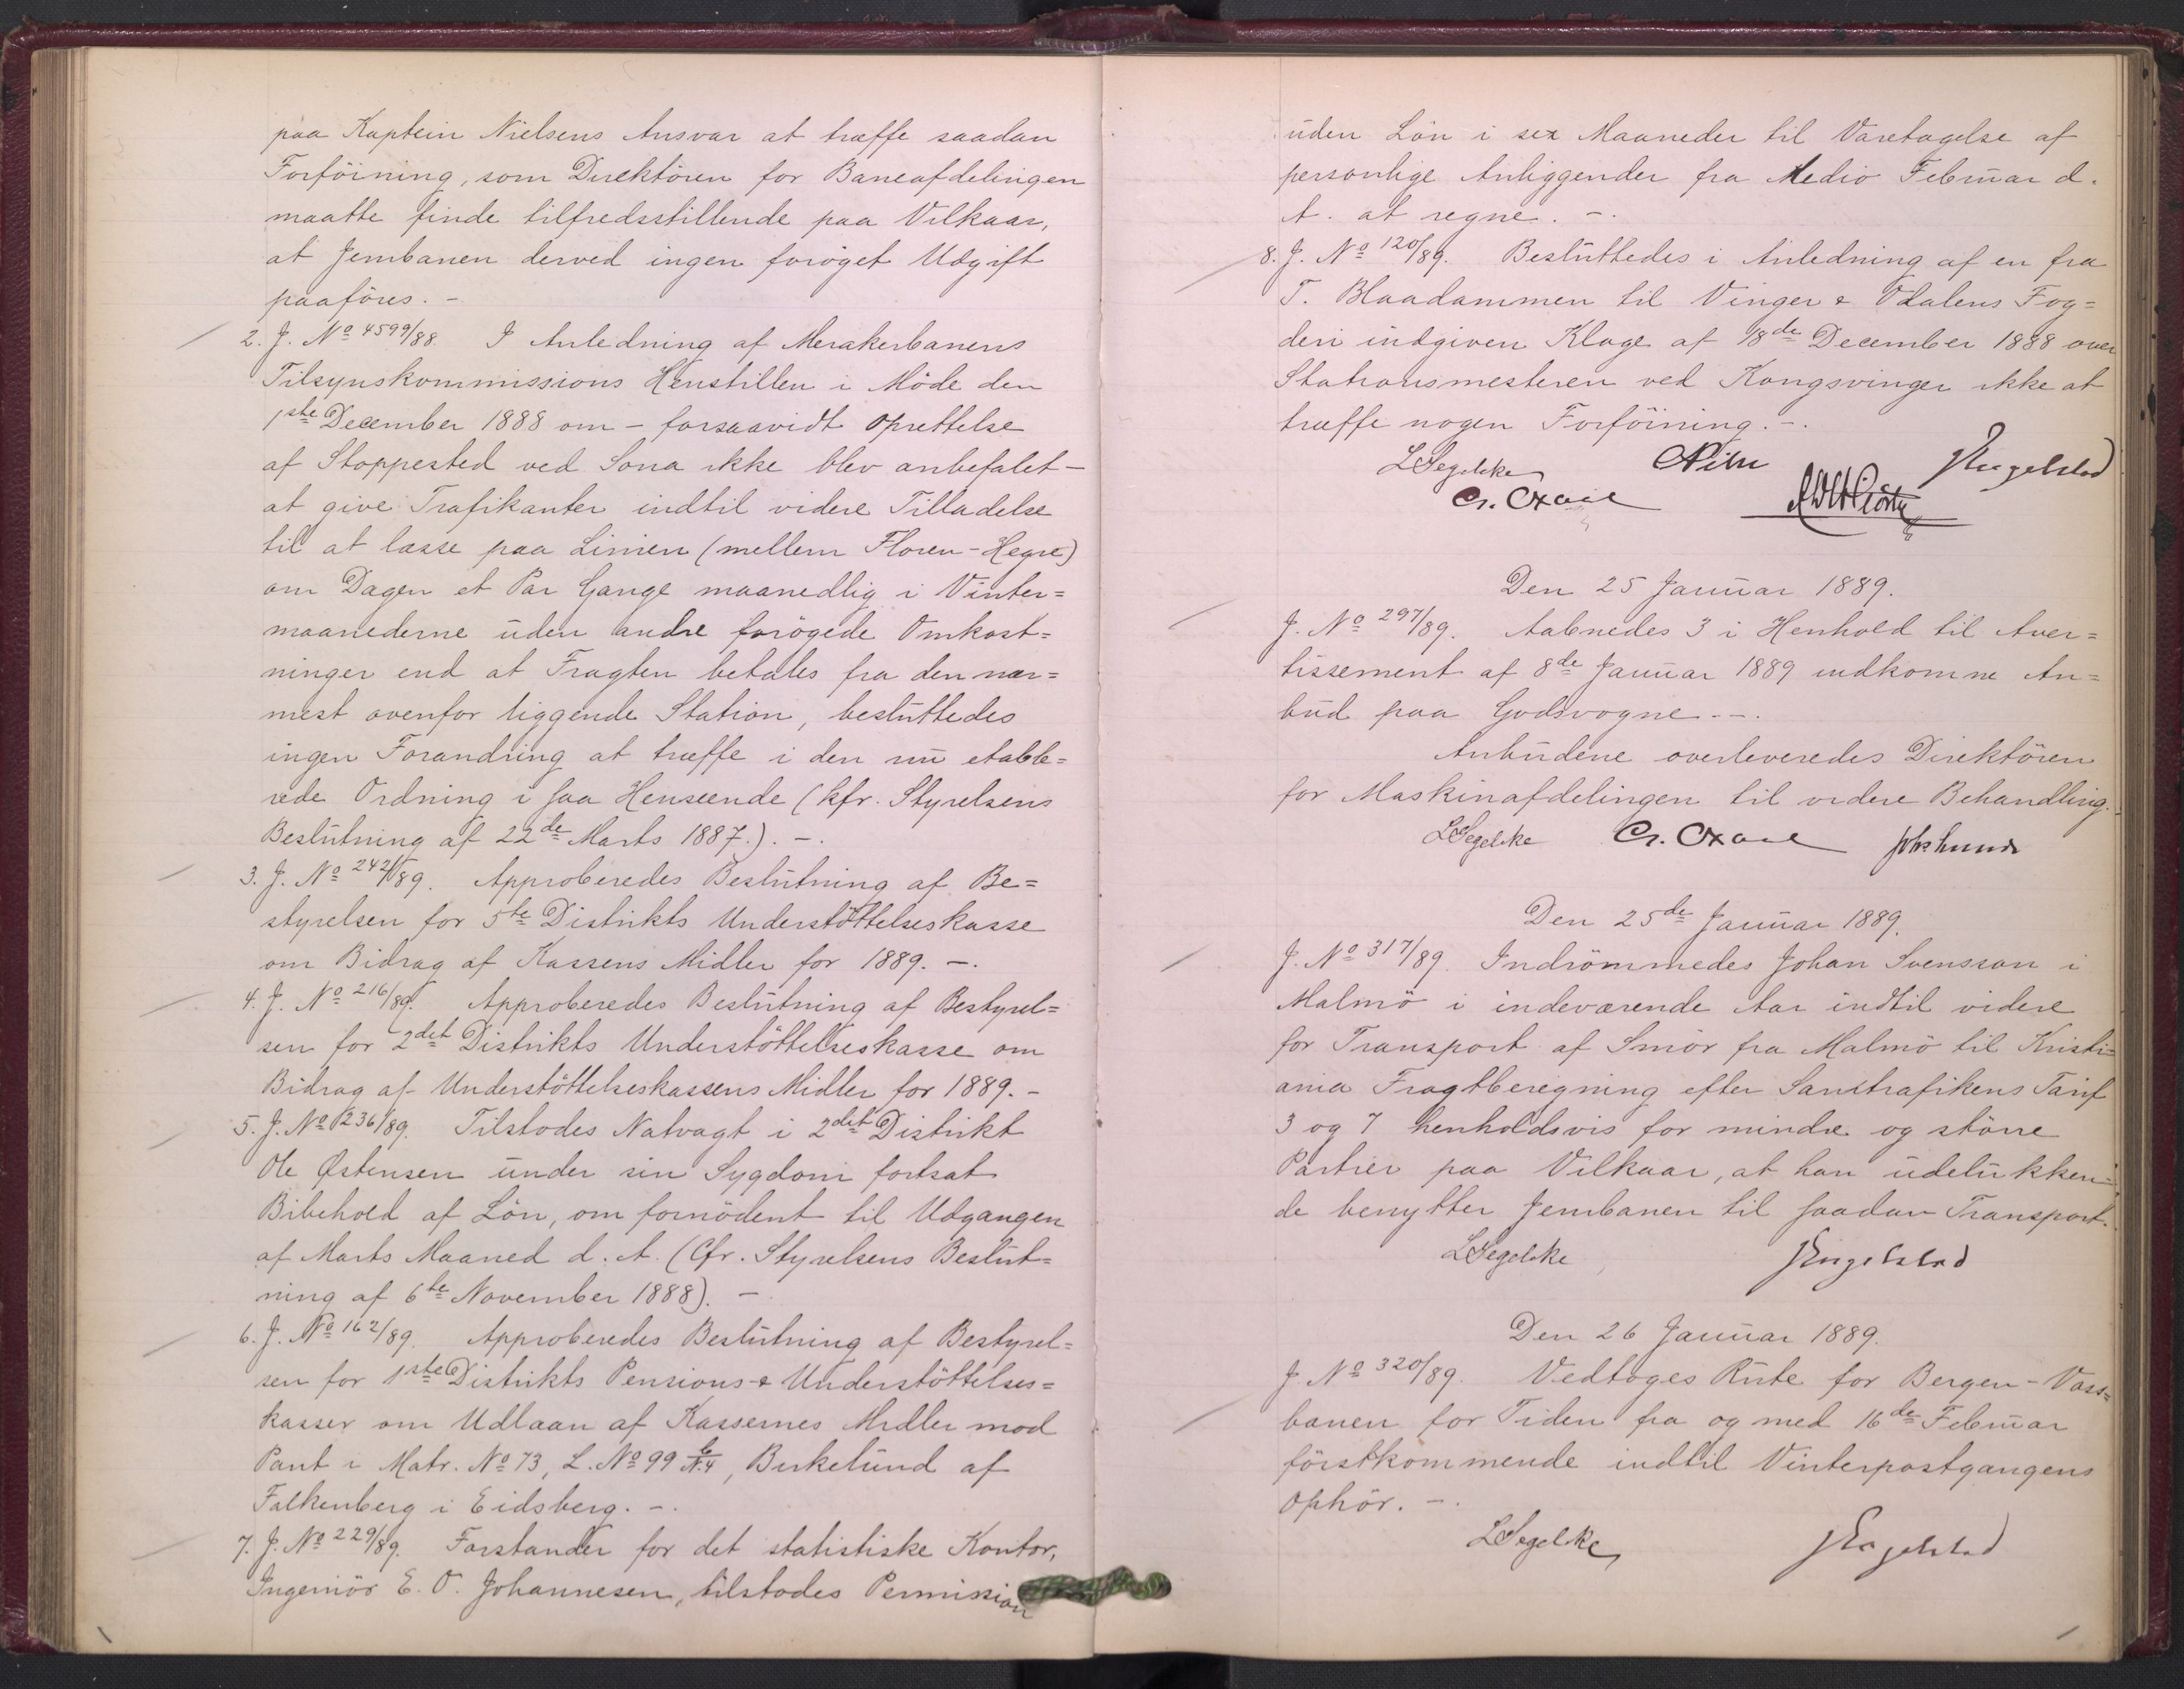 paa Kaptein Nielsens Ansvar at træffe saadan
Forföining, som Direktören for Baneafdelingen
maatte finde tilfredsstillende paa Vilkaar,
at Jernbanen derved ingen foröget Udgift
paaföres. -
2. J. No 4599/88. I Anledning af Merakerbanens
Tilsynskommissions Henstillen i Möde den
1ste December 1888 om - forsaavidt Oprettelse
af Stoppested ved Sona ikke blev anbefalet -
at give Trafikanter indtil videre Tilladelse
til at læsse paa Linien (mellem Floren-Hegre)
om Dagen et Par Gange maanedlig i Vinter=
maanederne uden andre forögede Omkost=
ninger end at Fragten betales fra den nær=
mest ovenfor liggende Station, besluttedes
ingen Forandring at træffe i den nu etable=
rede Ordning i saa Henseende (kfr. Styrelsens
Beslutning af 22de Marts 1887.). -.
3. J. No 242/89. Approberedes Beslutning af Be=
styrelsen for 5te Distrikts Understöttelseskasse
om Bidrag af Kassens Midler for 1889. -.
4. J. No 216/89. Approberedes Beslutning af Bestyrel=
sen for 2det Distrikts Understöttelseskasse om
Bidrag af Understöttelseskassens Midler for 1889. -
5. J. No 236/89. Tilstodes Natvagt i 2det Distrikt
Ole Østensen under sin Sygdom fortsat
Bibehold af Lön, om fornödent til Udgangen
af Marts Maaned d. A. (Cfr. Styrelsens Beslut=
ning af 6te November 1888). -
6. J. No 162/89. Approberedes Beslutning af Bestyrel=
sen for 1ste Distrikts Pensions- & Understöttelses=
kasser om Udlaan af Kassernes Midler mod
Pant i Matr. No 73, L. No 99, Birkelund af
Falkenberg i Eidsberg. -.
7. J. No 229/89. Forstander for det statistiske Kontor,
Ingeniör E. O. Johannesen, tilstodes Permission
uden Lön i sex Maaneder til Varetagelse af
personlige Anliggender fra Medio Februar d.
A. at regne. -.
8. J. No 120/89. Besluttedes i Anledning af en fra
T. Blaadammen til Vinger & Odalens Fog=
deri indgiven Klage af 18de December 1888 over
Stationsmesteren ved Kongsvinger ikke at
træffe nogen Forföining. -.
LSegelcke JEngelstad
Den 25 Januar 1889.
J. No 297/89. Aabnedes 3 i Henhold til Aver=
tissement af 8de Januar 1889 indkomne An=
bud paa Godsvogne. -.
Anbudene overleveredes Direktören
for Maskinafdelingen til videre Behandling.
LSegelcke
Den 25de Januar 1889.
J. No 317/89. Indrömmedes Johan Svensson i
Malmö i indeværende Aar indtil videre
for Transport af Smör fra Malmö til Kristi=
ania Fragtberegning efter Samtrafikens Tarif
3 og 7 henholdsvis for mindre og större
Partier paa Vilkaar, at han udelukken=
de benytter Jernbanen til saadan Transport.
LSegelcke JEngelstad
Den 26 Januar 1889.
J. No 320/89. Vedtoges Rute for Bergen-Voss=
banen for Tiden fra og med 16de Februar
förstkommende indtil Vinterpostgangens
Ophör. -.
LSegelcke JEngelstad